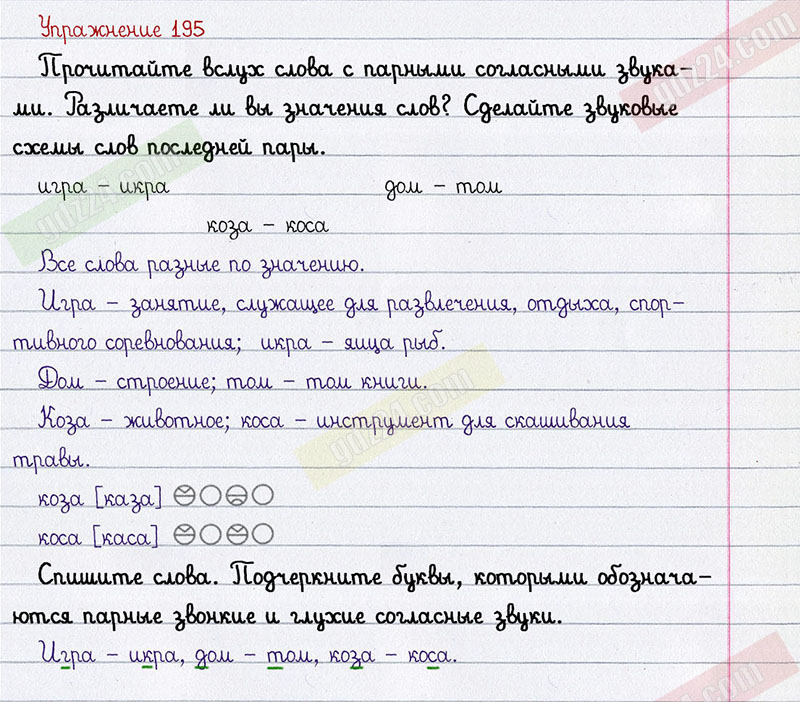 Упражнение 195
Прочитайте вслух слова с парными согласными звука-
ми. Различаете ли вы значения слов? Сделайте звуковые
схемы слов последней пары.
игра – икра дом – том
коза – коса
Все слова разные по значению.
Игра – занятие, служащее для развлечения, отдыха, спор-
тивного соревнования; икра – яйца рыб.
Дом – строение; том – том книги.
Коза – животное; коса – инструмент для скашивания
травы.
коза [каза]
коса [каса]
Спишите слова. Подчеркните буквы, которыми обознача-
ются парные звонкие и глухие согласные звуки.
Игра – икра, дом – том, коза – коса.
gdz24.com
gdz24.com
gdz24.com
gdz24.com